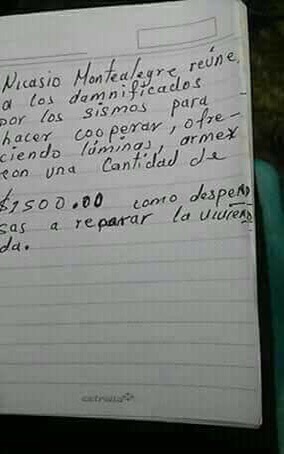 Nicasio Montealegre, reúne
a los damnificados
por los sismos para
hacer cooperar, ofre-
ciendo láminas, armex
con una cantidad de
$1500.00 como despen
sas a reparar la vivien
da.
estrella